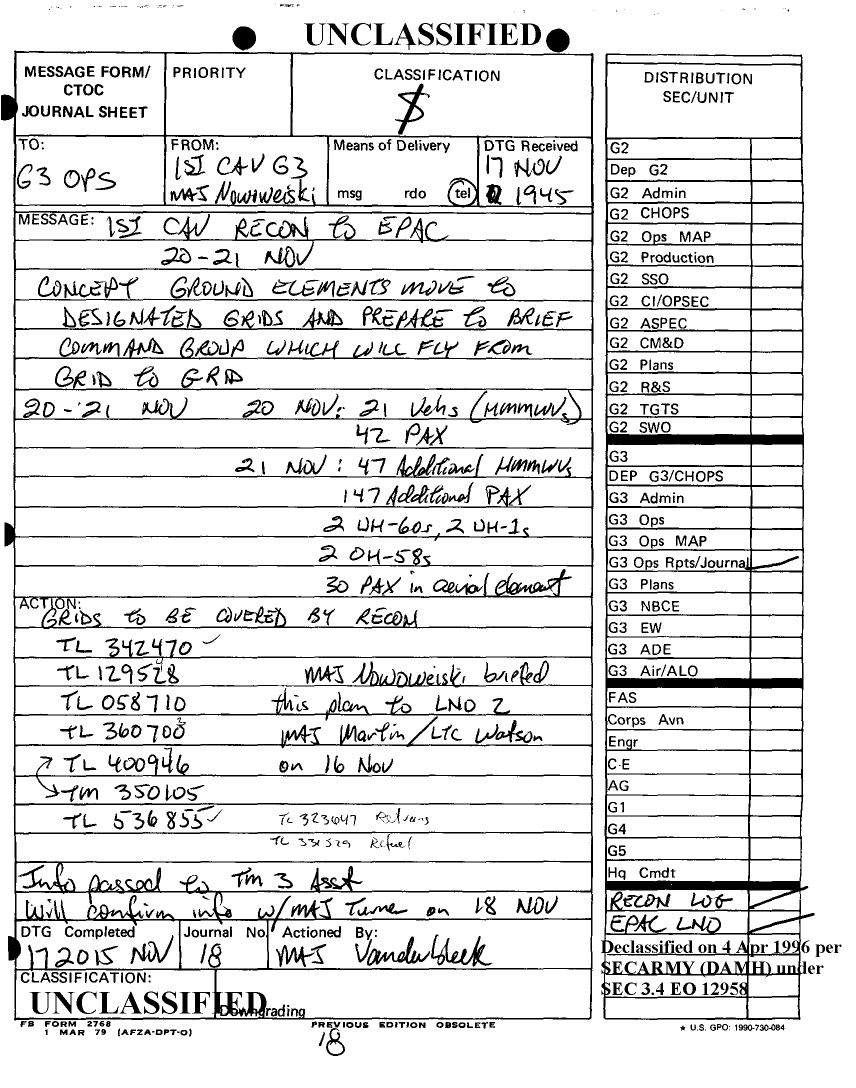 UNCLASSIFIED
MESSAGE FORM/
CTOC
JOURNAL SHEET
PRIORITY
CLASSIFICATION
TO:
G3 OPS
FROM:
1ST CAV G3
MAJ Nowoweiski
Means of Delivery
msg rdo tel
DTG Received
17 NOV
1945
MESSAGE: 1ST CAV RECON to EPAC
20-21 NOV
CONCEPT GROUND ELEMENTS MOVE to
DESIGNATED GRIDS AND PREPARE to BRIEF
COMMAND GROUP WHICH WILL FLY FROM
GRID to GRID
20-21 NOV 20 NOV: 21 Vehs (HMMWVs)
42 PAX
21 NOV: 47 Additional HMMWVs
147 Additional PAX
2 UH-60s, 2 UH-1s
2 OH-58s
30 PAX in aerial element
ACTION:
GRIDS to BE COVERED BY RECON
TL 342470
TL 129528 MAJ Nowoweiski briefed
TL 058710 this plan to LNO 2
TL 360700 MAJ Martin/LTC Watson
TL 400946 on 16 Nov
TM 350105
TL 536855 TL 323647 Retrans
TL 331529 Refuel
Info passed to Tm 3 Asst
Will confirm info w/MAJ Turner on 18 NOV
DTG Completed
172015 NOV
Journal No.
18
Actioned By:
MAJ Vanderbleek
CLASSIFICATION:
UNCLASSIFIED
Downgrading
FB FORM 2768
1 MAR 79 (AFZA-DPT-O)
PREVIOUS EDITION OBSOLETE
18
DISTRIBUTION
SEC/UNIT
G2
Dep G2
G2 Admin
G2 CHOPS
G2 Ops MAP
G2 Production
G2 SSO
G2 CI/OPSEC
G2 ASPEC
G2 CM&D
G2 Plans
G2 R&S
G2 TGTS
G2 SWO
G3
DEP G3/CHOPS
G3 Admin
G3 Ops
G3 Ops MAP
G3 Ops Rpts/Journal
G3 Plans
G3 NBCE
G3 EW
G3 ADE
G3 Air/ALO
FAS
Corps Avn
Engr
C-E
AG
G1
G4
G5
Hq Cmdt
RECON LOG
EPAC LNO
Declassified on 4 Apr 1996 per
SECARMY (DAMH) under
SEC 3.4 EO 12958
★ U.S. GPO: 1990-730-084